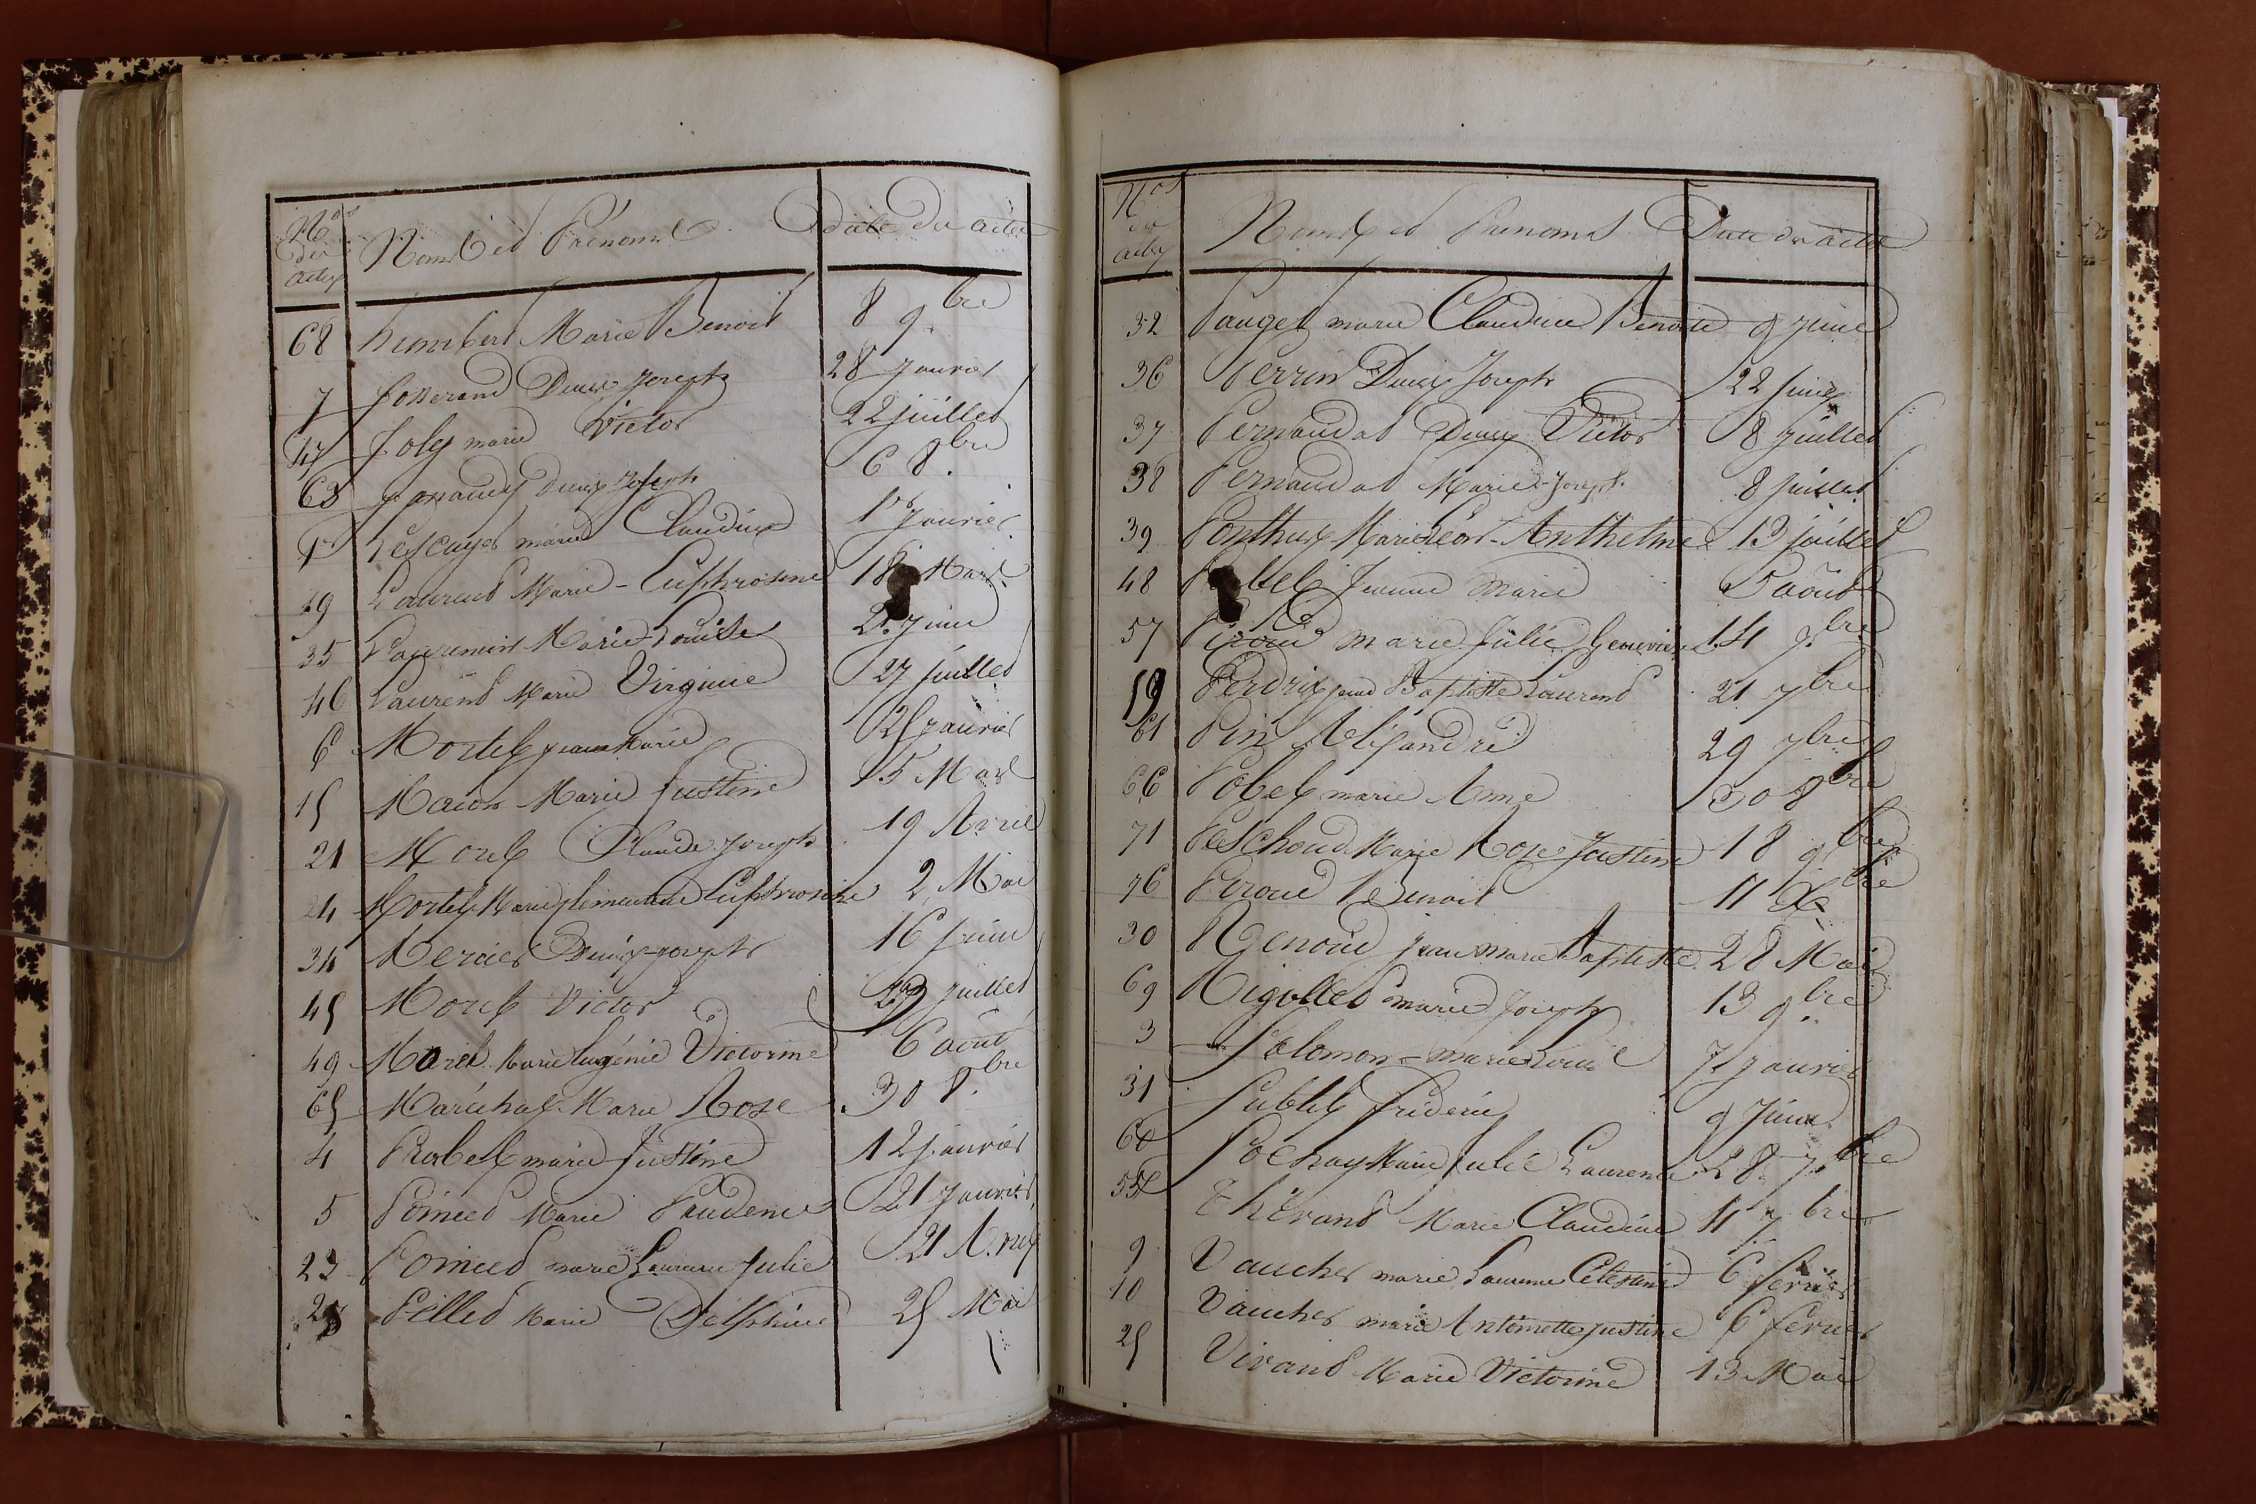 Nos des actes Noms et Prénoms Date du acte
68 humbert Marie Benoit 8 9.bre
7 Josserand Denis Joseph 28 Janvier
47 Joly marie Victor 22 juillet
63 Denis Joseph 6 8.bre
1er marie Claudine 1er Janvier
19 Laurent Marie-Euphrosine 18 Mars
35 Marie Louise 21 Juin
46 Laurent Marie Virginie 27 juillet
6 Mortel jean Marie 25 janvier
15 Macon Marie Justine 15 Mars
21 Morel Claude Joseph 19 Avril
24 Mortel Marie Euphrosine 2 Mai
34 Mercier Denis-joseph 16 Juin
45 Morel Victor juillet
49 Morel Marie Eugénie Victorine 6 août
65 Maréchal Marie Rose 30 8.bre
4 marie Justine 12 janvier
5 Poncet Marie Prudence 21 Janvier
23 Poncet marie Laurence Julie 21 Avril
Pillet Marie Delphine 25 Mai
Nos des actes Noms et Prenoms Date du acte
32 Pauget marie Claudine Benoite 9 juin
36 Perrin Denis Joseph 22 juin
37 Pernaudat Denis Victor 8 juillet
38 Pernaudat Marie-Joseph 8 juillet
39 Ponthus Marie Léon-Anthelme 13 juillet
48 Jeanne Marie 5 août
57 marie Julie Genevieve 14 7.bre
19 Perdrix jean Baptiste Laurent 21 7bre
61 Pin Aléxandre 29 7bre
66 Pobel marie Anne 30 8bre
71 Peschoud Marie Rose Justine 18 9bre
76 Benoit 11 Xbre
30 Genoud jean marie Baptiste 28 Mai
69 Rigollet marie Joseph 13 9.bre
3 Solomon-marie Louis 7 janvier
31 Sublet fréderic 9 Juin
60 Sochay Marie Julie Laurence 28 7bre
55 thévand Marie Claudine 11 7bre
9 Vaucher marie Laurence Célestine 6 fevrier
10 Vaucher marie Antoinette justine 6 fevrier
25 Virand Marie Victorine 13 Mai